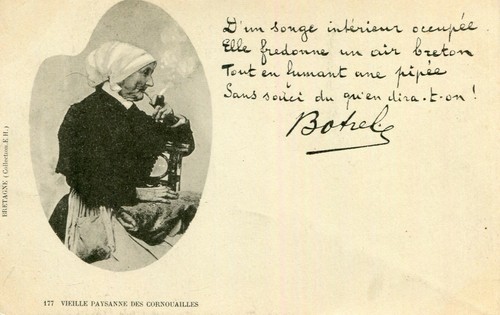 D'un songe intérieur occupée
Elle fredonne un air breton
Tout en fumant une pipée
Sans souci du qu'en dira-t-on !
Botrel
BRETAGNE (Collection E. H.)
177 VIEILLE PAYSANNE DES CORNOUAILLES